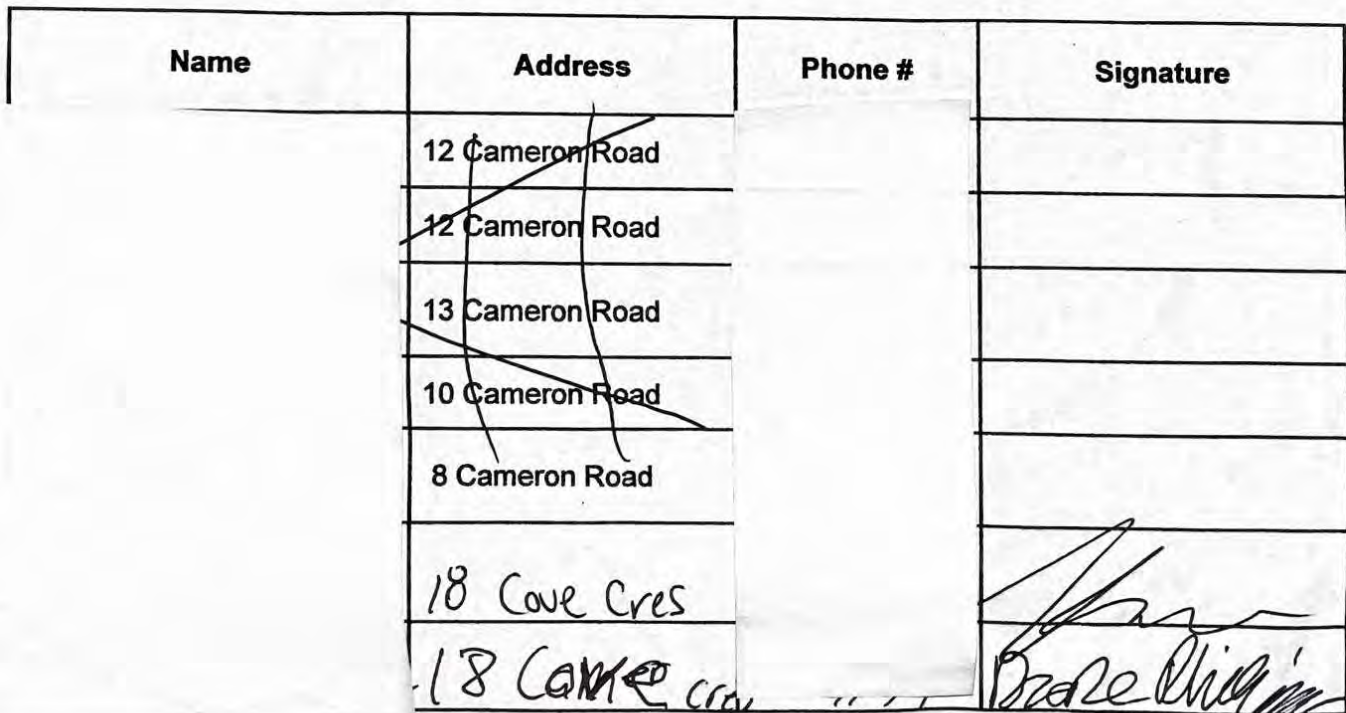 Name Address Phone # Signature
12 Cameron Road
12 Cameron Road
13 Cameron Road
10 Cameron Road
8 Cameron Road
18 Cove Cres
18